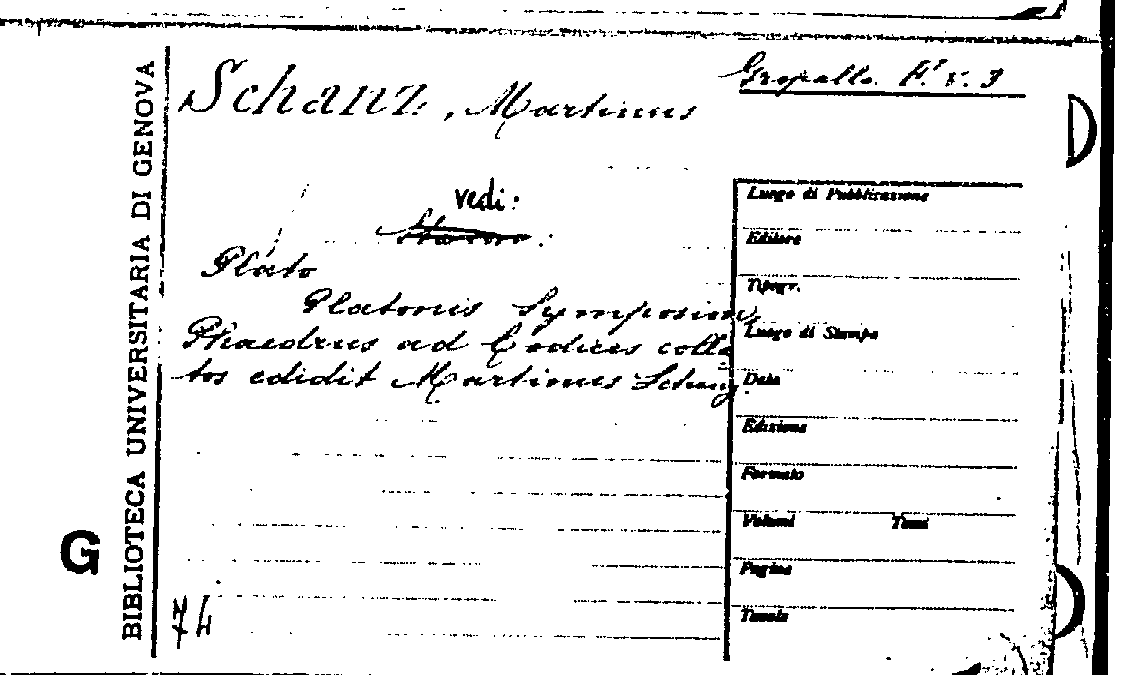 Gropallo. A¹. v. 3
Schanz, Martinus
vedi:
Plato
Platonis Symposium,
Phaedrus ad Codices colla
tos edidit Martinus Schanz.
74
BIBLIOTECA UNIVERSITARIA DI GENOVA
G
Luogo di Pubblicazione
Editore
Tipogr.
Luogo di Stampa
Data
Edizione
Formato
Volumi Tomi
Pagine
Tavole